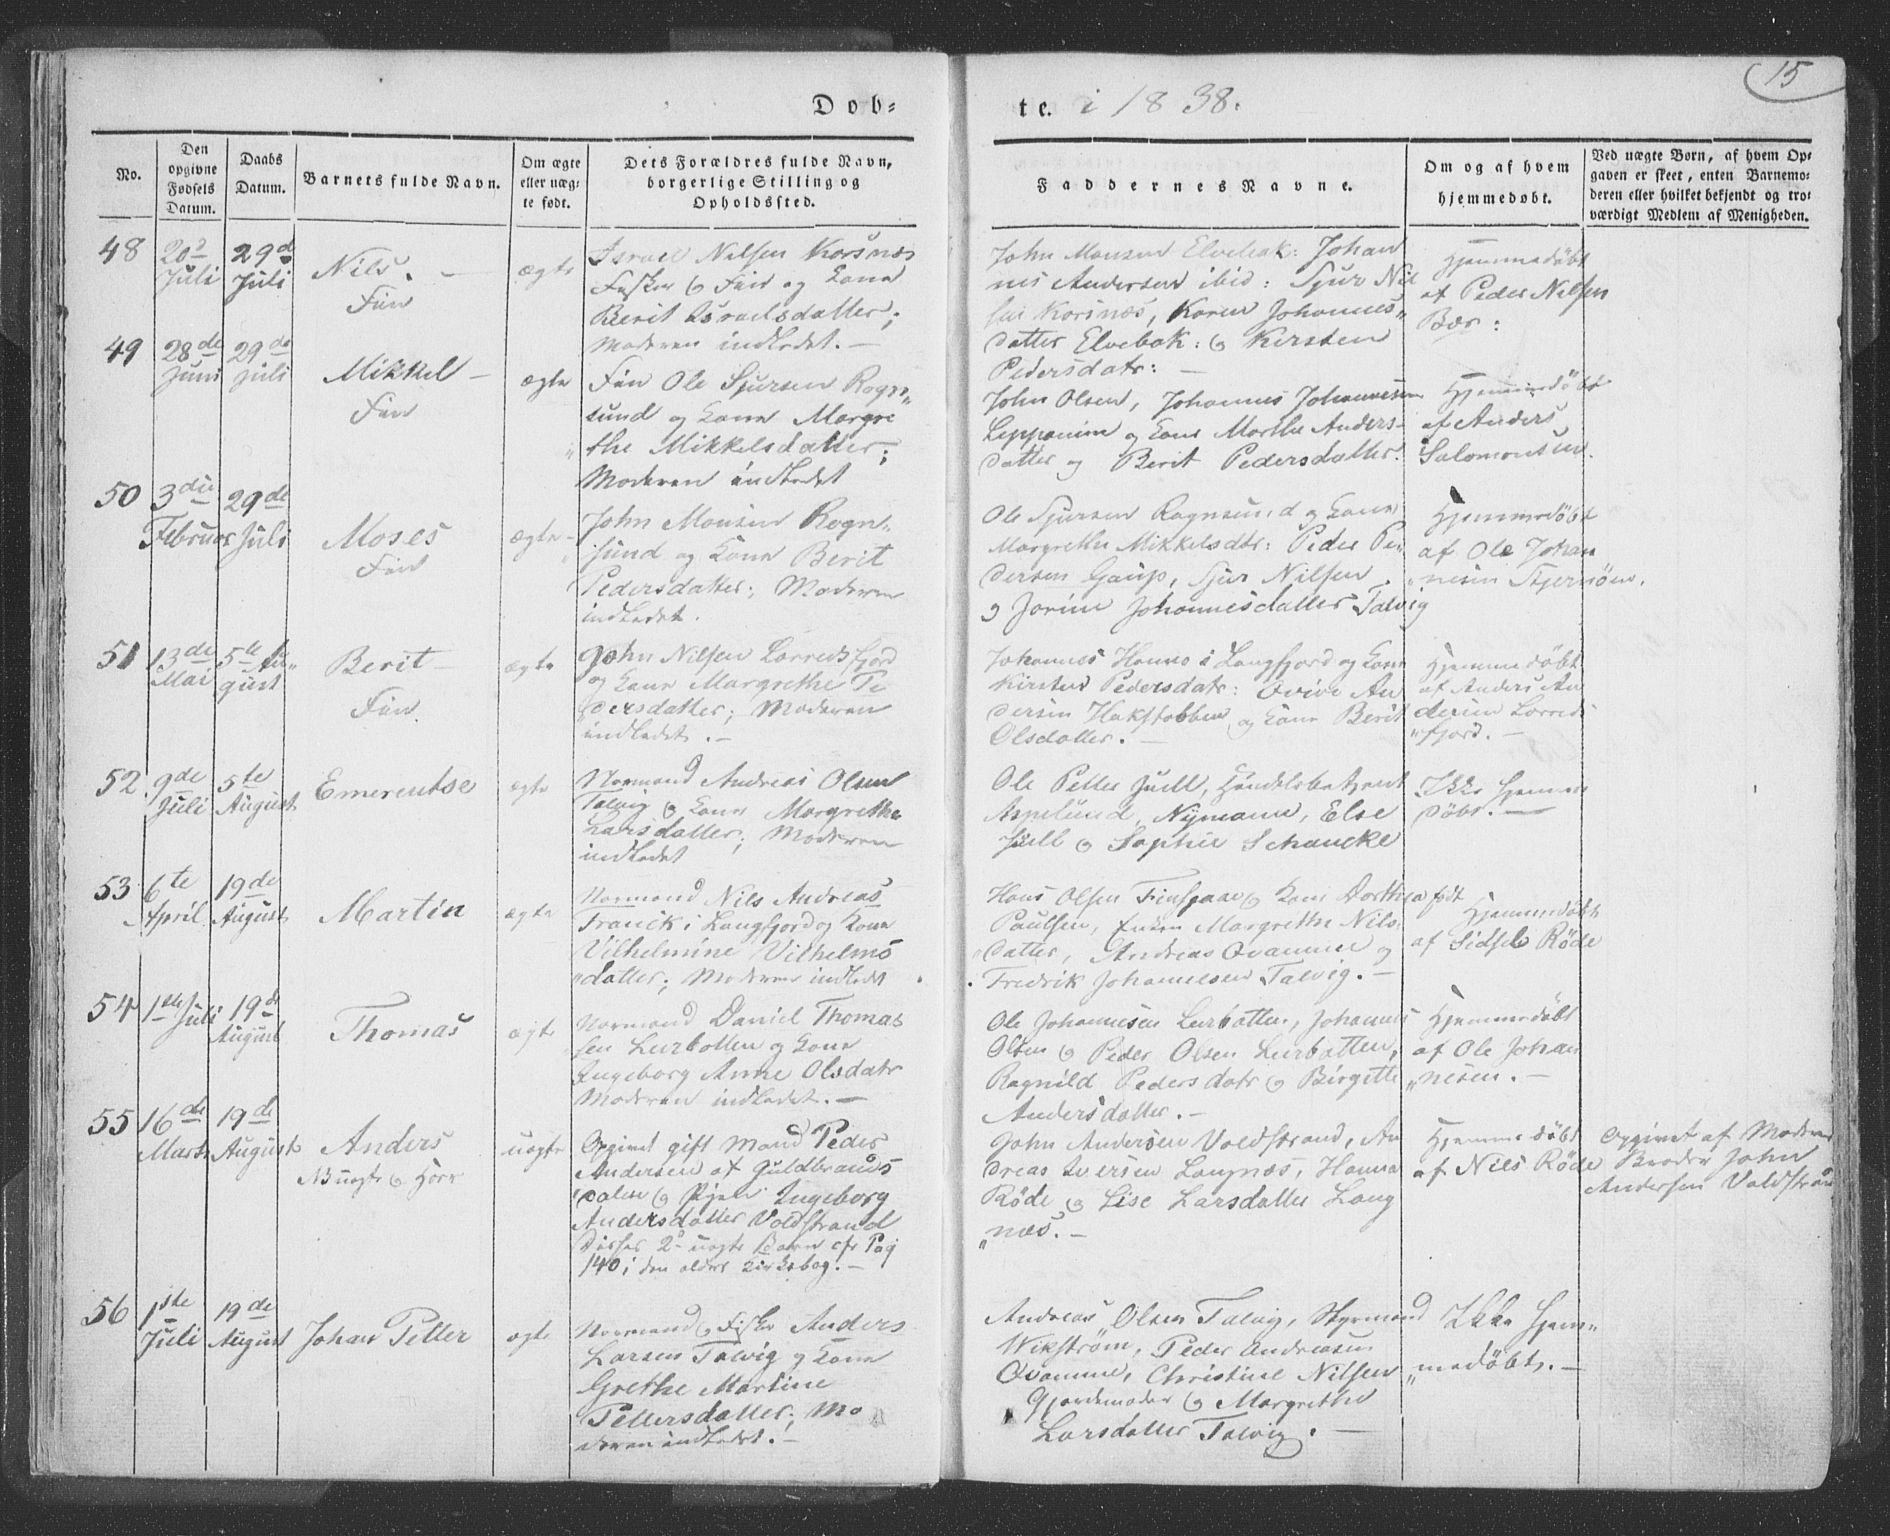 15
Dob=
te. i 1838.
No.
Den opgivne Fødsels Datum.
Daabs Datum.
Barnets fulde Navn.
Om ægte eller uæg-te født.
Dets Forældres fulde Navn, borgerlige Stilling og Opholdssted.
Faddernes Navne.
Om og af hvem hjemmedøbt.
Ved uægte Børn, af hvem Op-gaven er skeet, enten Barnemo-deren eller hvilket bekjendt og tro-værdigt Medlem af Menigheden.
48
Juli
29d
Juli
Nils. —
Fin
ægte
Israel Nilsen Korsnæs
Fisker & Fin og Kone
Berit Israelsdatter;
Moderen indledet. —
John Monsen Elvebak: Johan
nes Andersen ibid: Sjur Nil
sen Korsnæs, Karen Johannes
datter Elvebak: & Kirsten
Pedersdatr: —
Hjemmedøbt
af Peder Nilsen
Bær:
49
28de
Juni
29de
Juli
Mikkel —
Fin
ægte
Fin Ole Sjursen Rogn
sund og Kone Margre
the Mikkelsdatter;
Moderen indledet
John Olsen, Johannes Johannesen
Leppanine og Kone Marthe Anders-
datter og Berit Pedersdatter.
Hjemmedøbt
af Anders
Salomonsen.
50
3die
Februar
29de
Juli
Moses
Fin
ægte
John Monsen Rogn-
sund og Kone Berit
Pedersdatter; Moderen
indledet.
Ole Sjursen Rognsund og Kone
Margrethe Mikkelsdtr: Peder Pe
dersen Gaup, Sjur Nilsen
& Jorine Johannesdatter Talvig
Hjemmedøbt
af Ole Johan
nesen Stjernöen.
51
13de
Mai
5te Au-
gust
Berit —
Fin.
ægte
John Nilsen Lorredsfjord
og Kone Margrethe Pe
dersdatter; Moderen
indledet. —
Johannes Hanno i Langfjord og Kone
Kirsten Pedersdatr: Qvive An
dersen Hakstabben og Kone Berit
Olsdatter. —
Hjemmedøbt
af Anders An
dersen Lorreds
fjord. —
52.
9de
Juli
5te
August
Emerentse
ægte
Normand Andreas Olsen
Talvig & Kone Margrethe
Larsdatter; Moderen
indledet
Ole Petter Juell, Handelsbetjent
Aspelund, Nymann, Else
Juell & Sophie Schancke
Ikke hjemme
døbt. —
53
6te
April
19de
August
Martin
ægte
Normand Nils Andreas
Franck i Langfjord og Kone
Vilhelmine Vilhelms
datter; Moderen indledet
Hans Olsen Finspaae & Kone Dorthea født
Paulsen, Enken Margrethe Nils
datter, Andreas Qvamme og
Fredrik Johannesen Talvig. —
Hjemmedøbt
af Sidsel Røde
54
1ste Juli
19de
August
Thomas
ægte
Normand Daniel Thomas
sen Lerbotten og Kone
Ingeborg Anne Olsdatr
Moderen indledet. —
Ole Johannesen Lerbotten, Johannes
Olsen & Peder Olsen Lerbotten,
Ragnild Pedersdatr & Birgitte
Andersdatter. —
Hjemmedøbt
af Ole Johan
nesen. —
55
16de
Marts
19de
August
Anders
NB uægte & Hórr
uægte
Opgivet gift Mand Peder
Andersen af Guldbrands
dalen & Pigen Ingeborg
Andersdatter Voldstrand
Disses 2d uægte Barn cfr Pag
140 i den ældre Kirkebog. —
John Andersen Voldstrand, An
dreas Iversen Langnæs, Hanna
Røde & Lise Larsdatter Lang
næs. —
Hjemmedøbt
af Nils Røde
Opgivet af Moderens
Broder John
Andersen Voldstrand
56
1ste
Juli
19de
August
Johan Petter
ægte
Normand & Fisker Anders
Larsen Talvig og Kone
Grethe Martine
Pettersdatter; Mo
deren indledet. —
Andreas Olsen Talvig, Styrmand
Wikstrøm, Peder Andreasen
Qvamme, Christine Nilsen
Gjordemoder & Margrethe
Larsdatter Talvig. —
Ikke hjem-
medøbt. —